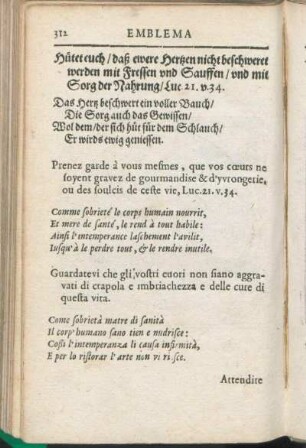 312 EMBLEMA
Hütet euch / daß ewere Hertzen nicht beschweret
werden mit Fressen vnd Sauffen / vnd mit
Sorg der Nahrung / Luc 21. v. 34.
Das Hertz beschwert ein voller Bauch /
Die Sorg auch das Gewissen /
Wol dem / der sich hüt für dem Schlauch /
Er wirds ewig geniessen.
Prenez garde à vous mesmes, que vos cœurs ne
soyent gravez de gourmandise & d'yvrongerie,
ou des soulcis de ceste vie, Luc. 21. v. 34.
Comme sobrieté le corps humain nourrit,
Et mere de santé, le rend à tout habile:
Ainsi l'intemperance laschement l'avilit,
Iusqu'à le perdre tout, & le rendre inutile.
Guardatevi che gli vostri cuori non siano aggra-
vati di crapola e imbriachezza e delle cure di
questa vita.
Come sobrietà matre di sanità
Il corp' humano sano tien e nudrisce:
Cosi l'intemperanza li causa infirmità,
E per lo ristorar l'arte non vi ri sce.
Attendite